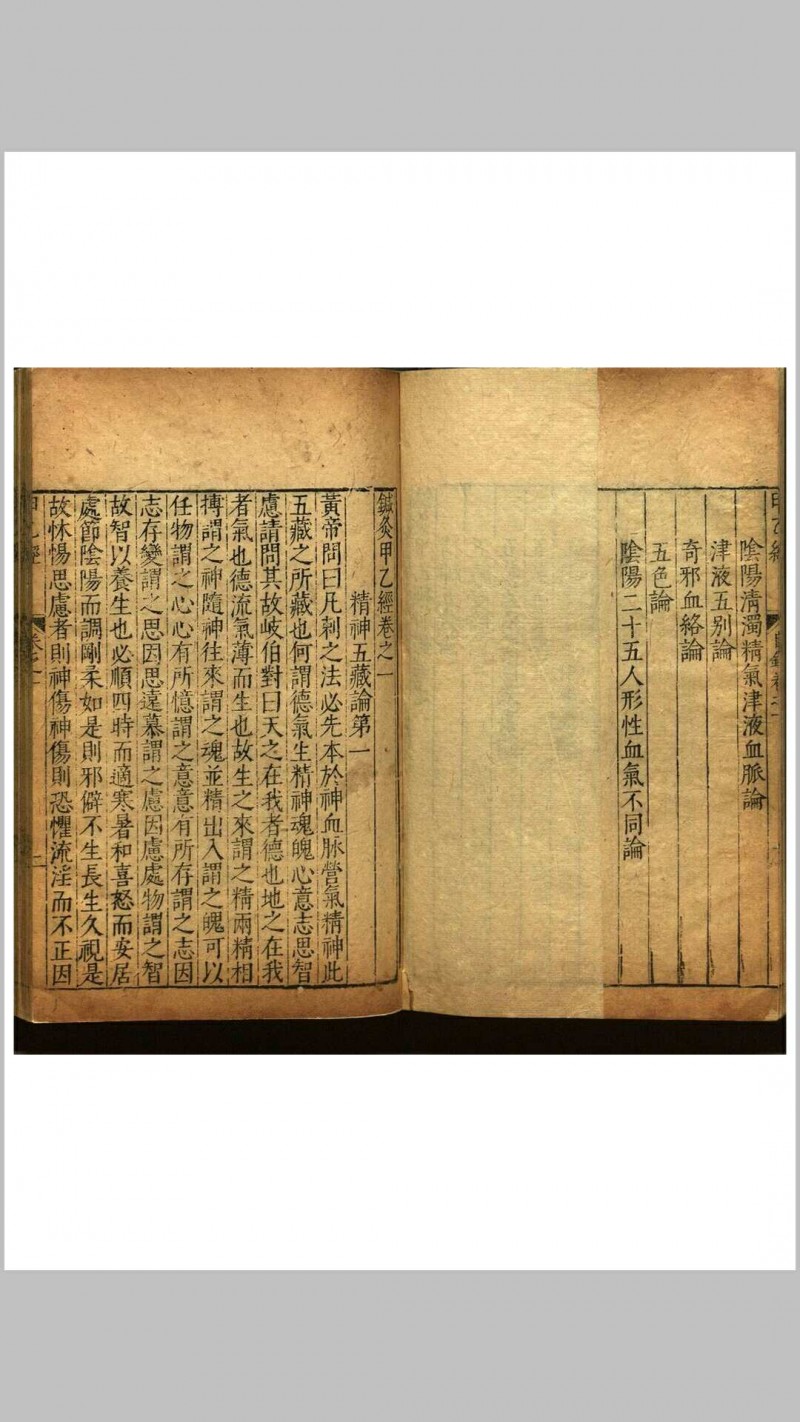 陰陽清濁精氣津液血脈論
津液五别論
奇邪血絡論
五色論
陰陽二十五人形性血氣不同論
鍼灸甲乙經卷之一
精神五藏論第一
黃帝問曰凡刺之法必先本於神血脈營氣精神此
五藏之所藏也何謂德氣生精神魂魄心意志思智
慮請問其故岐伯對曰天之在我者德也地之在我
者氣也德流氣薄而生也故生之來謂之精兩精相
搏謂之神隨神往來謂之魂並精出入謂之魄可以
任物謂之心心有所憶謂之意意有所存謂之志因
志存變謂之思因思遠慕謂之慮因慮處物謂之智
故智以養生也必順四時而適寒暑和喜怒而安居
處節陰陽而調剛柔如是則邪僻不生長生久視是
故怵惕思慮者則神傷神傷則恐懼流淫而不正因